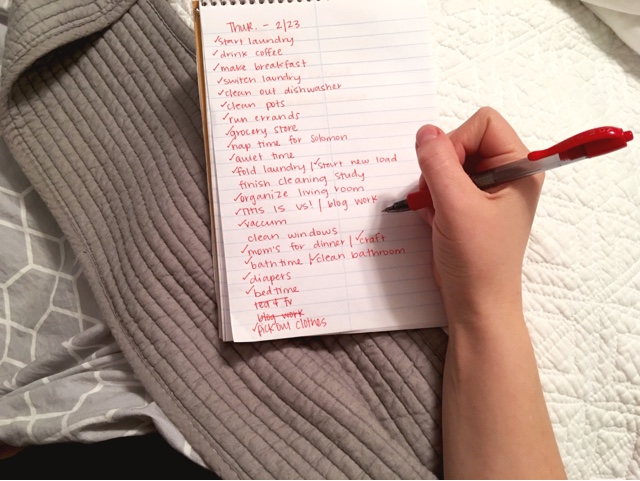 Thur. - 2/23
✓start laundry
✓drink coffee
✓make breakfast
✓switch laundry
✓clean out dishwasher
✓clean pots
✓run errands
✓grocery store
✓nap time for Solomon
✓quiet time
✓fold laundry | ✓start new load
finish cleaning study
✓organize living room
✓This is us! | blog work
✓vaccum
clean windows
✓mom's for dinner | ✓craft
✓bath time | ✓clean bathroom
✓diapers
✓bedtime
tea + tv
blog work
✓pick out clothes